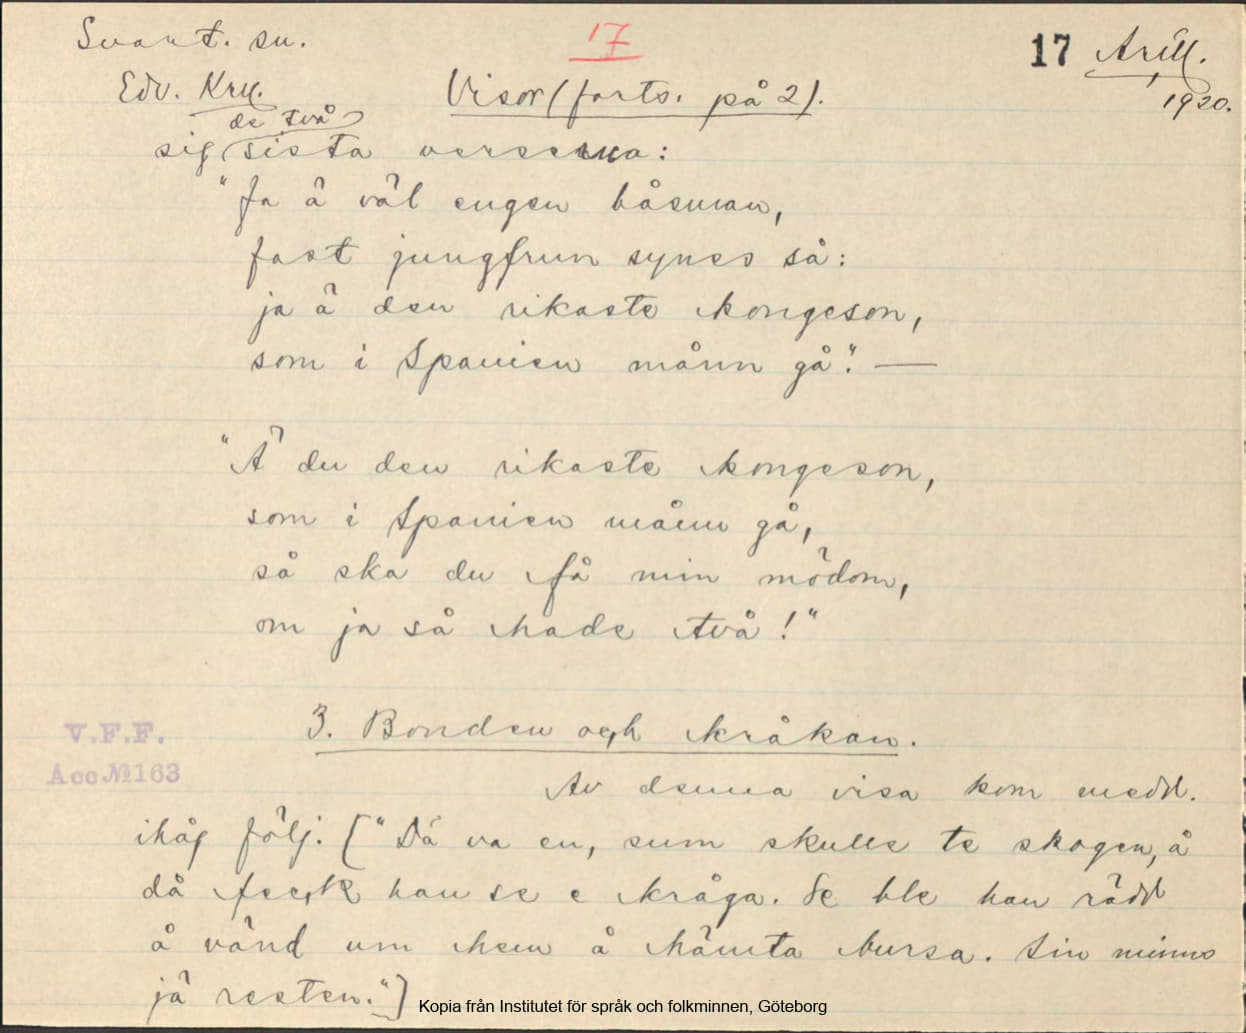 Svart. su.
17
17 Arill.
1920.
Edv. Kru.
Visor (forts. på 2).
de två
sig sista verserna:
"Ja ä väl engen båsman,
fast jungfrun synes så:
ja ä den rikaste kongeson,
som i Spanien månn gå". —
"Ä du den rikaste kongeson,
som i Spanien månn gå,
så ska du få min mödom,
om ja så hade två!"
3. Bonden och kråkan.
V.F.F.
Acc № 163
Av denna visa kom medd.
ihåg följ. ["Dä va en, sum skulle te skogen, å
då feck han se e kråga. Se ble han rädd
å vänd um hem å hämta bursa. Sin minns
jä resten."]
Kopia från Institutet för språk och folkminnen, Göteborg